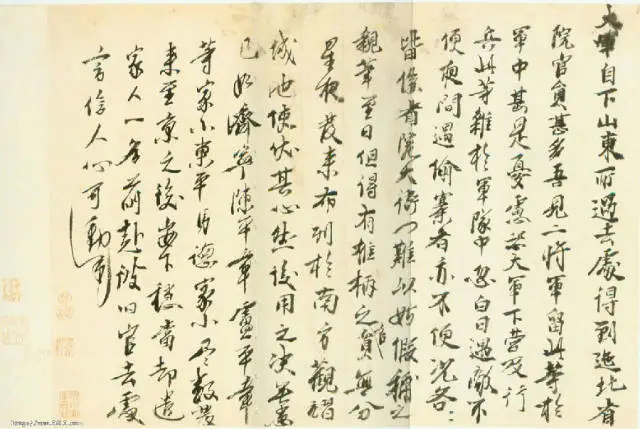 大軍自下山東所過去處得到迤北省
院官員甚多吾見二將軍留此等於
軍中甚是憂慮恐大軍下營及行
兵此等雜於軍隊中忽白日遇敵不
便夜間遇偷寨者亦不便況各〻
皆係省院大衙門難以姑假補之
親筆至日但得有椎柄之官員無分
星夜發來布列於南方觀
城池使伏其心然後用之決無患
已如濟寧陳平章盧平章
等家小東平馬德家小盡數發
來至京之後安下穩當却遣
家人一名前赴彼舊官去處
言信人心可動